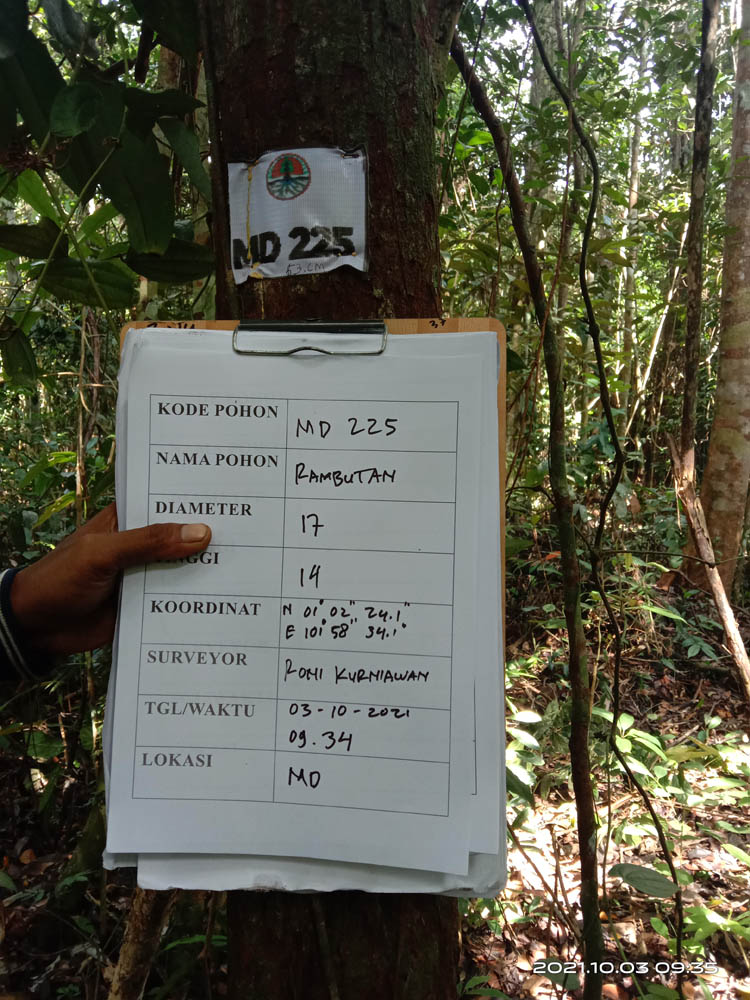 MD 225
53.CM
KODE POHON MD 225
NAMA POHON RAMBUTAN
DIAMETER 17
TINGGI 14
KOORDINAT N 01° 02" 24.1"
E 101° 58" 34.1"
SURVEYOR RONI KURNIAWAN
TGL/WAKTU 03-10-2021
09.34
LOKASI MD
2021.10.03 09:35